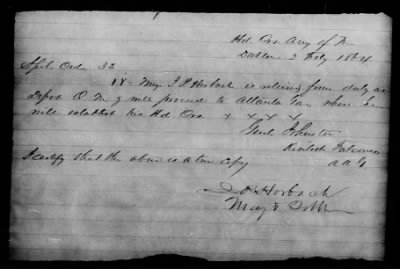 Hd Qrs Army of
Dalton 2 Feby 1864
Spl Ord 32
IX Maj J P Horbach is relieved from duty as
Depot Q M & will proceed to Atlanta Ga, where he
will establish his Hd Qrs x x x x
Genl Johnston
Kinloch Falconer
A A G
I certify that the above is a true copy
J P Horbach
Maj &